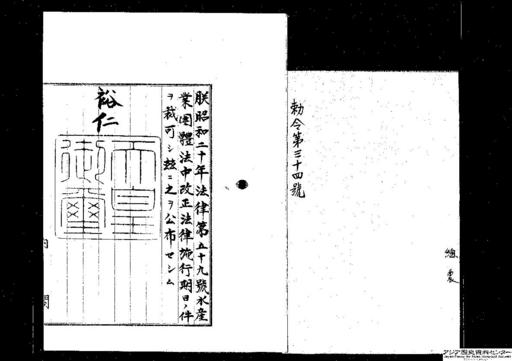 勅令第三十四號
總裏
朕昭和二十年法律第五十九號水産
業團體法中改正法律施行期日ノ件
ヲ裁可シ玆ニ之ヲ公布セシム
裕仁
天皇
御璽
内閣
アジア歴史資料センター
Japan Center for Asian Historical Records